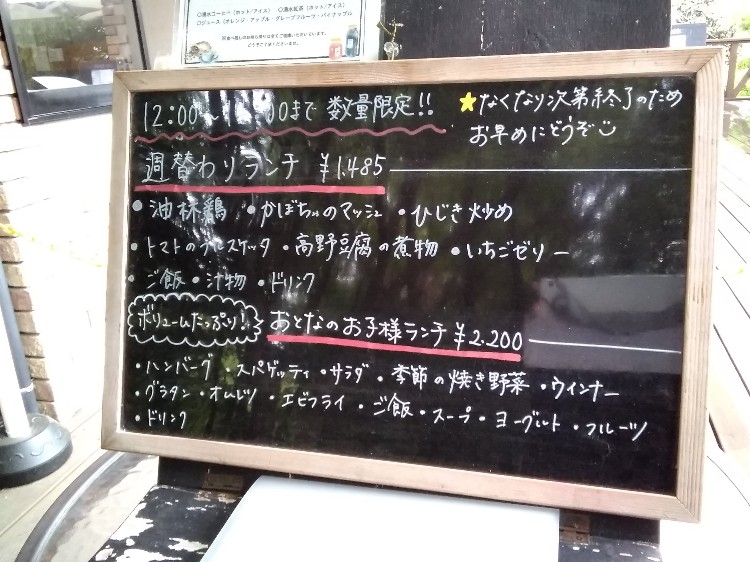 ○湧水コーヒー（ホット/アイス） ○湧水紅茶（ホット/アイス）
○ジュース（オレンジ・アップル・グレープフルーツ・パイナップル
12:00～1 :00まで 数量限定!!
★なくなり次第終了のため
お早めにどうぞ
週替わりランチ ¥1,485
・油林鶏 ・かぼちゃのマッシュ ・ひじき炒め
・トマトのブルスケッタ ・高野豆腐の煮物 ・いちごゼリー
・ご飯 ・汁物 ・ドリンク
ボリュームたっぷり!
おとなのお子様ランチ ¥2,200
・ハンバーグ ・スパゲッティ ・サラダ ・季節の焼き野菜 ・ウィンナー
・グラタン ・オムレツ ・エビフライ ・ご飯 ・スープ ・ヨーグルト ・フルーツ
・ドリンク